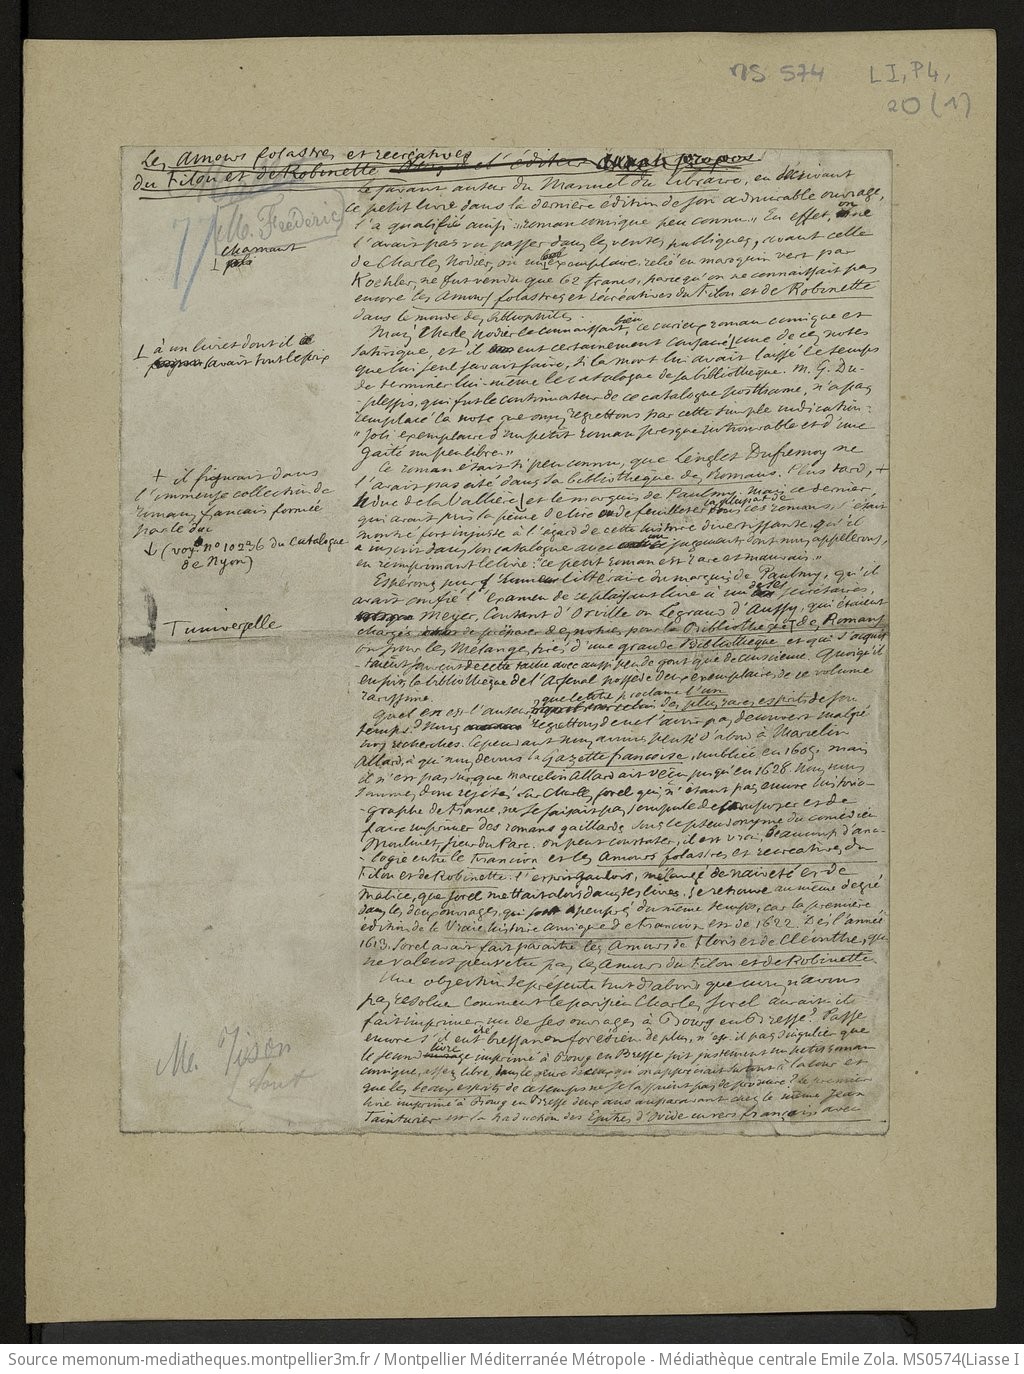 MS 574 L I, P4,
20 (1)
Les Amours folastres et recreatives
du Filou et de Robinette
Le savant auteur du Manuel du Libraire, en décrivant
ce petit livre dans la dernière édition de son admirable ouvrage,
l'a qualifié ainsi: "roman comique peu connu." En effet, on ne
l'avait pas vu passer dans les ventes publiques, avant celle
de Charles Nodier, où un bel exemplaire, relié en maroquin vert par
Koehler, ne fut vendu que 62 francs, parce qu'on ne connaissait pas
encore les Amours folastres et récréatives du Filou et de Robinette
dans le monde des bibliophiles.
77
M. Frédéric
charmant
⊥ à un livret dont il
avait tout le prix
Mais Charles Nodier le connaissait bien, ce curieux roman comique et
satirique, et il eut certainement consacré une de ces notes
que lui seul savait faire, si la mort lui avait laissé le temps
de terminer lui-même le catalogue de sa bibliothèque. M. G. Du-
plessis, qui fut le continuateur de ce catalogue posthume, n'a pas
remplacé la note que nous regrettons par cette simple indication:
"Joli exemplaire d'un petit roman presque introuvable et d'une
gaité un peu libre."
Ce roman était si peu connu, que Lenglet Dufresnoy ne
l'avait pas cité dans sa bibliothèque des Romans. Plus tard, +
+ il figurait dans
l'immense collection de
romans français formée
par le duc
le duc de la Vallière et le marquis de Paulmy. Mais ce dernier,
qui avait pris la peine de lire ou de feuilleter la plupart de ces romans, s'était
montré fort injuste à l'égard de cette histoire divertissante, qu'il
a inscrit dans son catalogue avec un jugement dont nous appellerons,
en réimprimant le livre: "ce petit roman est rare et mauvais."
↓ (voy. n° 10236 du Catalogue
de Nyon)
Espérons, pour l'honneur littéraire du marquis de Paulmy, qu'il
avait confié l'examen de ce plaisant livre à un de ses secrétaires,
Mayer, Contant d'Orville ou Legrand d'Aussy, qui étaient
chargés de préparer des notices pour la Bibliothèque des Romans
T universelle
ou pour les Mélanges tirés d'une grande Bibliothèque et qui s'acquit-
taient souvent de cette tache avec aussi peu de goût que de conscience. Quoiqu'il
en soit, la bibliothèque de l'Arsenal possède deux exemplaires de ce volume
rarissime.
Quel en est l'auteur, que le titre proclame l'un des plus rares esprits de son
temps? Nous regrettons de ne l'avoir pas découvert malgré
nos recherches. Cependant nous avions pensé d'abord à Marcelin
Allard, à qui nous devons la Gazette françoise, publiée en 1605, mais
il n'est pas sûr que Marcelin Allard ait vécu jusqu'en 1628. Nous nous
sommes donc rejetés sur Charles Sorel qui, n'étant pas encore historio-
graphe de France, ne se faisait pas scrupule de composer et de
faire imprimer des romans gaillards sous le pseudonyme du comédien
Moulinet, sieur du Parc. On peut constater, il est vrai, beaucoup d'ana-
logie entre le Francion et les Amours folastres et recreatives du
Filou et de Robinette: l'esprit gaulois, mélangé de naiveté et de
malice, que Sorel mettait alors dans ses livres, se retrouve au même degré
dans les deux ouvrages, qui sont à peu près du même temps, car la première
édition de la Vraie histoire comique de Francion est de 1622. Dès l'année
1613, Sorel avait fait paraitre les Amours de Floris et de Cléonthe, qui
ne valent peut-être pas les Amours du Filou et de Robinette.
Une objection se présente tout d'abord que nous n'avons
pas résolue. Comment le parisien Charles Sorel aurait-il
fait imprimer un de ses ouvrages à Bourg en Bresse? Passe
encore s'il eut été bressan ou forésien. De plus, n'est-il pas singulier que
le second livre imprimé à Bourg en Bresse soit justement un petit roman
comique, assez libre, dans le genre de ceux qu'on appréciait surtout à la cour et
que les beaux esprits de ce temps ne se lassaient pas de produire? Le premier
livre imprimé à Bourg en Bresse deux ans auparavant chez le même Jean
Tainturier est la traduction des Epitres d'Ovide en vers français avec
Me. Tison
Source memonum-mediatheques.montpellier3m.fr / Montpellier Méditerranée Métropole - Médiathèque centrale Emile Zola. MS0574(Liasse I